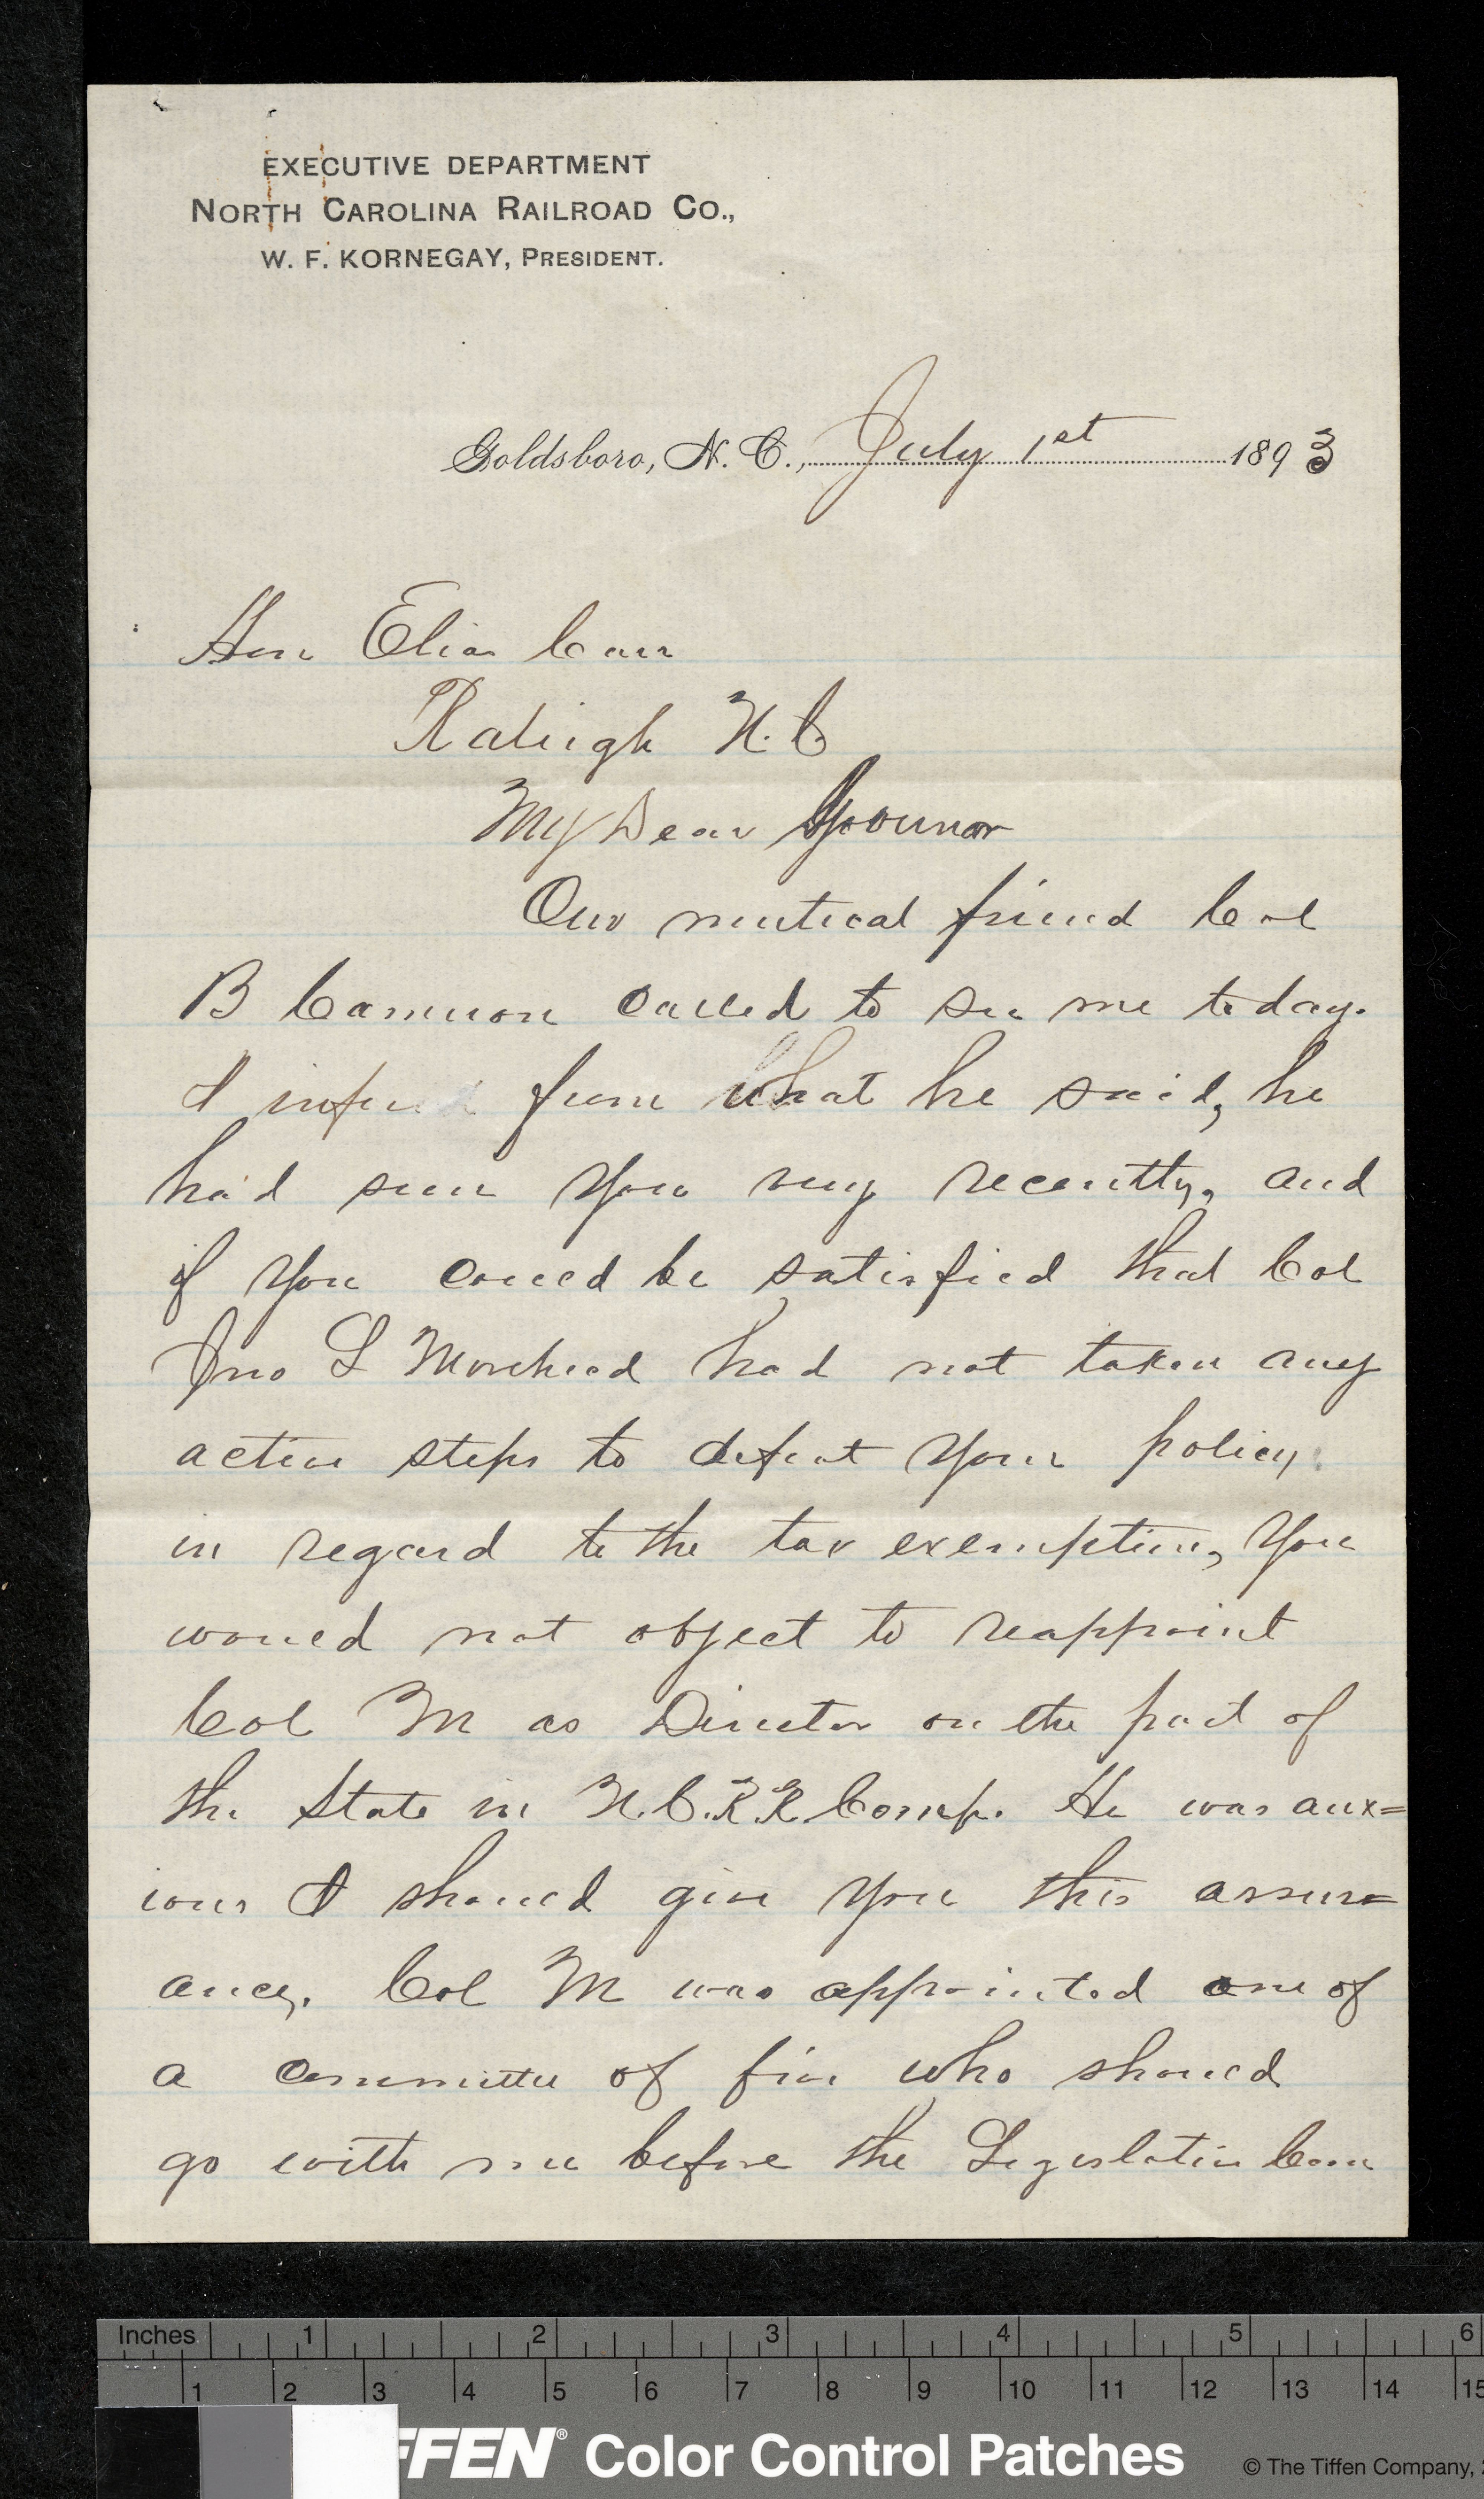 EXECUTIVE DEPARTMENT
NORTH CAROLINA RAILROAD CO.,
W. F. KORNEGAY, PRESIDENT.
Goldsboro, N. C., July 1st 1893
Hon Elias Carr
Raleigh N.C.
My Dear Governor
Our mutual friend Col
B Cameron called to see me today.
I inferred from what he said, he
had seen you very recently, and
if you could be satisfied that Col
Jno L Morehead had not taken any
active steps to defeat your policy
in regard to the tax exemption, you
would not object to reappoint
Col M as Director on the part of
the State in N.C.R.R. Comp. He was anx=
ious I should give you this assur=
ancy. Col M was appointed one of
a committee of five who should
go with me before the Legislative Com
Inches 1 2 3 4 5 6
1 2 3 4 5 6 7 8 9 10 11 12 13 14 15
FFEN® Color Control Patches © The Tiffen Company, 2